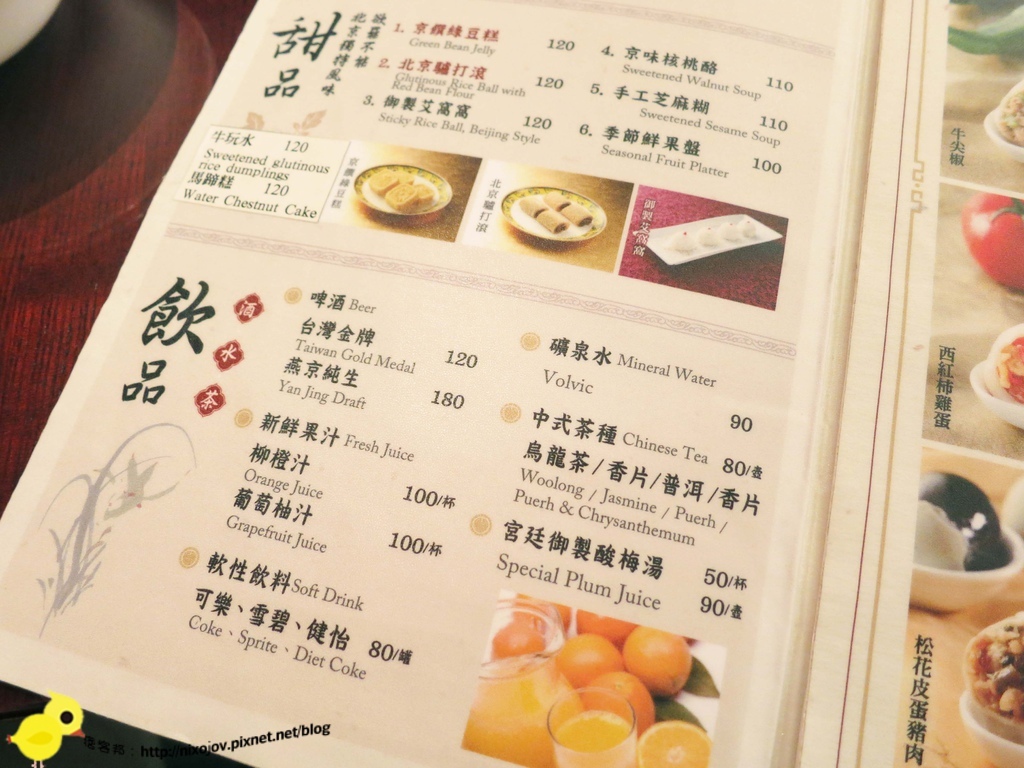 甜品
欲罷不能
北京獨特風味
1. 京饌綠豆糕 120
Green Bean Jelly
2. 北京驢打滾 120
Glutinous Rice Ball with
Red Bean Flour
3. 御製艾窩窩 120
Sticky Rice Ball, Beijing Style
4. 京味核桃酪 110
Sweetened Walnut Soup
5. 手工芝麻糊 110
Sweetened Sesame Soup
6. 季節鮮果盤 100
Seasonal Fruit Platter
牛玩水 120
Sweetened glutinous
rice dumplings
馬蹄糕 120
Water Chestnut Cake
京饌綠豆糕
北京驢打滾
御製艾窩窩
飲品
酒
水
茶
啤酒 Beer
台灣金牌
Taiwan Gold Medal 120
燕京純生
Yan Jing Draft 180
新鮮果汁 Fresh Juice
柳橙汁
Orange Juice 100/杯
葡萄柚汁
Grapefruit Juice 100/杯
軟性飲料 Soft Drink
可樂、雪碧、健怡 80/罐
Coke、Sprite、Diet Coke
礦泉水 Mineral Water
Volvic 90
中式茶種 Chinese Tea 80/壺
烏龍茶/香片/普洱/香片
Woolong / Jasmine / Puerh /
Puerh & Chrysanthemum
宮廷御製酸梅湯 50/杯
Special Plum Juice 90/壺
牛尖椒
西紅柿雞蛋
松花皮蛋豬肉
痞客邦：http://nixojov.pixnet.net/blog